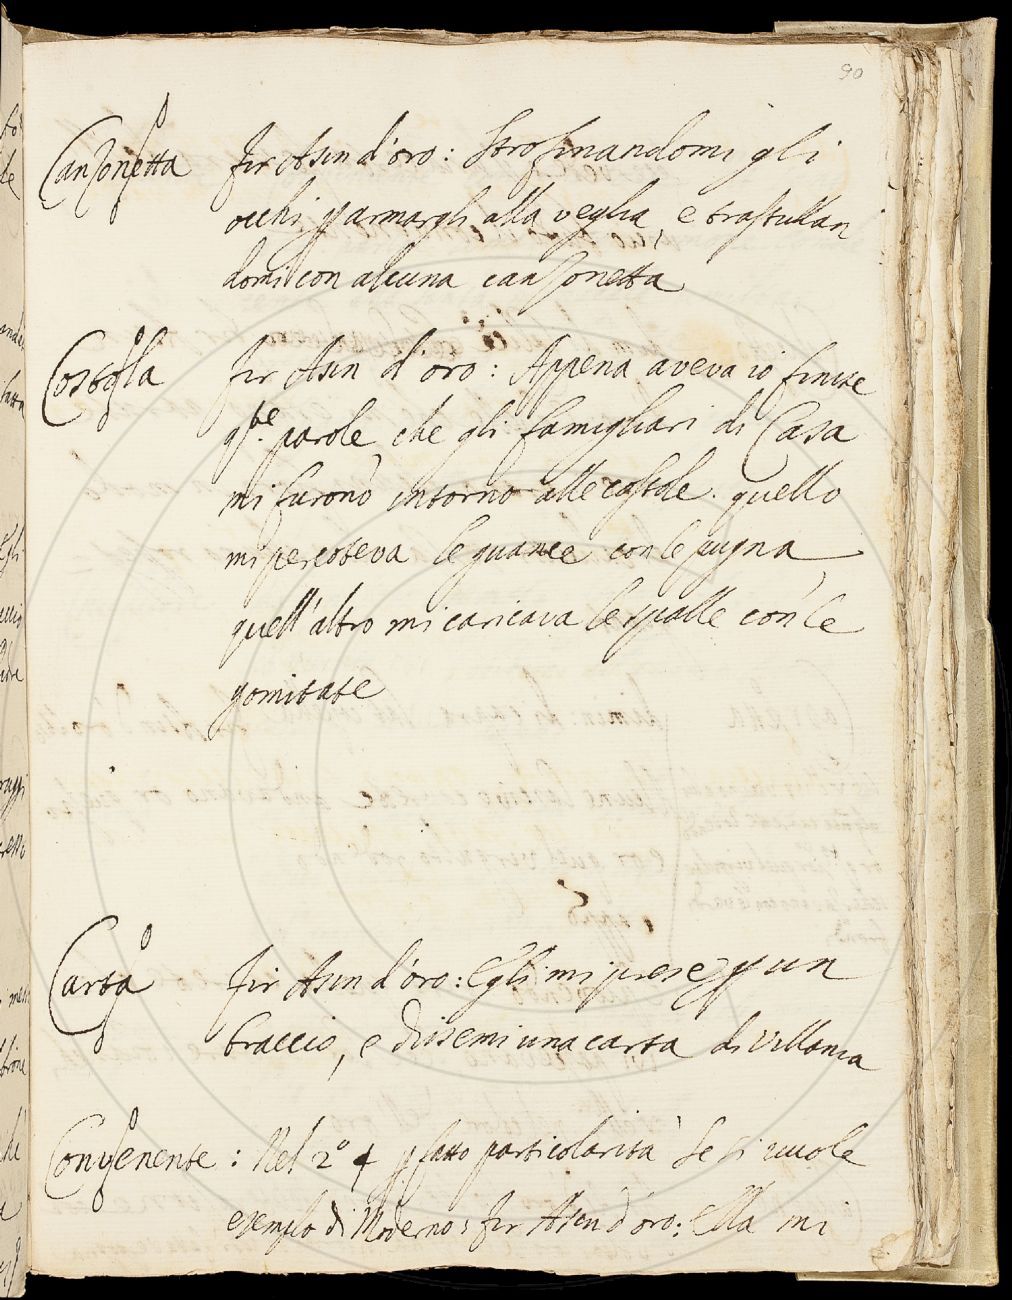 90
Canzonetta Fir Asin d'oro: Strofinandomi gli
occhi p armargli alla veglia, e trastullan
domi con alcuna canzonetta
Costola Fir Asin d'oro: Appena aveva io finite
qste parole, che gli famigliari di Casa
mi furono intorno alle costole. quello
mi percoteva le guance con le pugna,
quell'altro mi caricava le spalle con le
gomitate
Carta Fir Asin d'oro: Egli mi prese p un
braccio, e dissemi una carta di Villania
Convenente: Nel 2° p fatto particolarità se si vuole
esemplo di Moderno: Fir Asin d'oro: ella mi